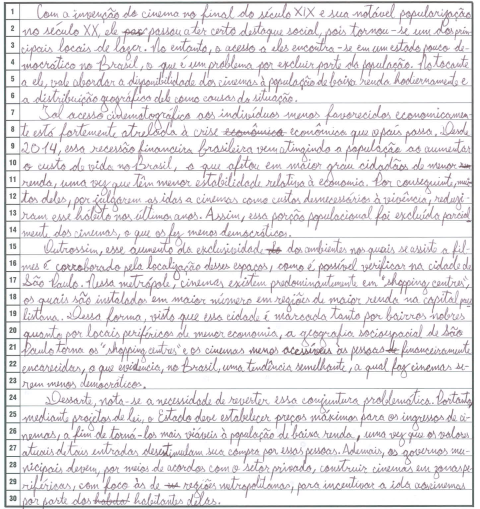 1 Com a invenção do cinema no final do século XIX e sua notável popularização
2 no século XX, ele passou a ter certo destaque social, pois tornou-se um dos prin
3 cipais locais de lazer. No entanto, o acesso a eles encontra-se em um estado pouco de-
4 mocrático no Brasil, o que é um problema por excluir parte da população. No tocante
5 a ele, vale abordar a disponibilidade dos cinemas à população de baixa renda hodiernamente e
6 a distribuição geográfica dele como causas da situação.
7 Tal acesso cinematográfico aos indivíduos menos favorecidos economicamen-
8 te está fortemente atrelado à crise econômica que o país passa. Desde
9 2014, essa recessão financeira brasileira vem atingindo a população ao aumentar
10 o custo de vida no Brasil, o que afetou em maior grau cidadãos de menor
11 renda, uma vez que têm menor estabilidade relativa à economia. Por conseguinte, mui
12 tos deles, por julgarem as idas a cinemas como custos desnecessários à vivência, reduzi-
13 ram esse hábito nos últimos anos. Assim, essa porção populacional foi excluída parcial
14 mente dos cinemas, o que os fez menos democráticos.
15 Outrossim, esse aumento da exclusividade dos ambientes nos quais se assiste a fil-
16 mes é corroborado pela localização desses espaços, como é possível verificar na cidade de
17 São Paulo. Nessa metrópole, cinemas existem predominantemente em "shopping centres",
18 os quais são instalados em maior número em regiões de maior renda na capital pau
19 listana. Dessa forma, visto que essa cidade é marcada tanto por bairros nobres
20 quanto por locais periféricos de menor economia, a geografia socioespacial de São
21 Paulo torna os "shopping centres" e os cinemas menos acessíveis às pessoas financeiramente
22 encarecidas, o que evidencia, no Brasil, uma tendência semelhante, a qual faz cinemas se-
23 rem menos democráticos.
24 Dessarte, nota-se a necessidade de reverter essa conjuntura problemática. Portanto,
25 mediante projetos de lei, o Estado deve estabelecer preços máximos para os ingressos de ci-
26 nemas, a fim de torná-los mais viáveis à população de baixa renda, uma vez que os valores
27 atuais de tais entradas desestimulam sua compra por essas pessoas. Ademais, os governos mu-
28 nicipais devem, por meios de acordos com o setor privado, construir cinemas em zonas pe-
29 riféricas, com foco às de regiões metropolitanas, para incentivar a ida aos cinemas
30 por parte dos habitantes delas.